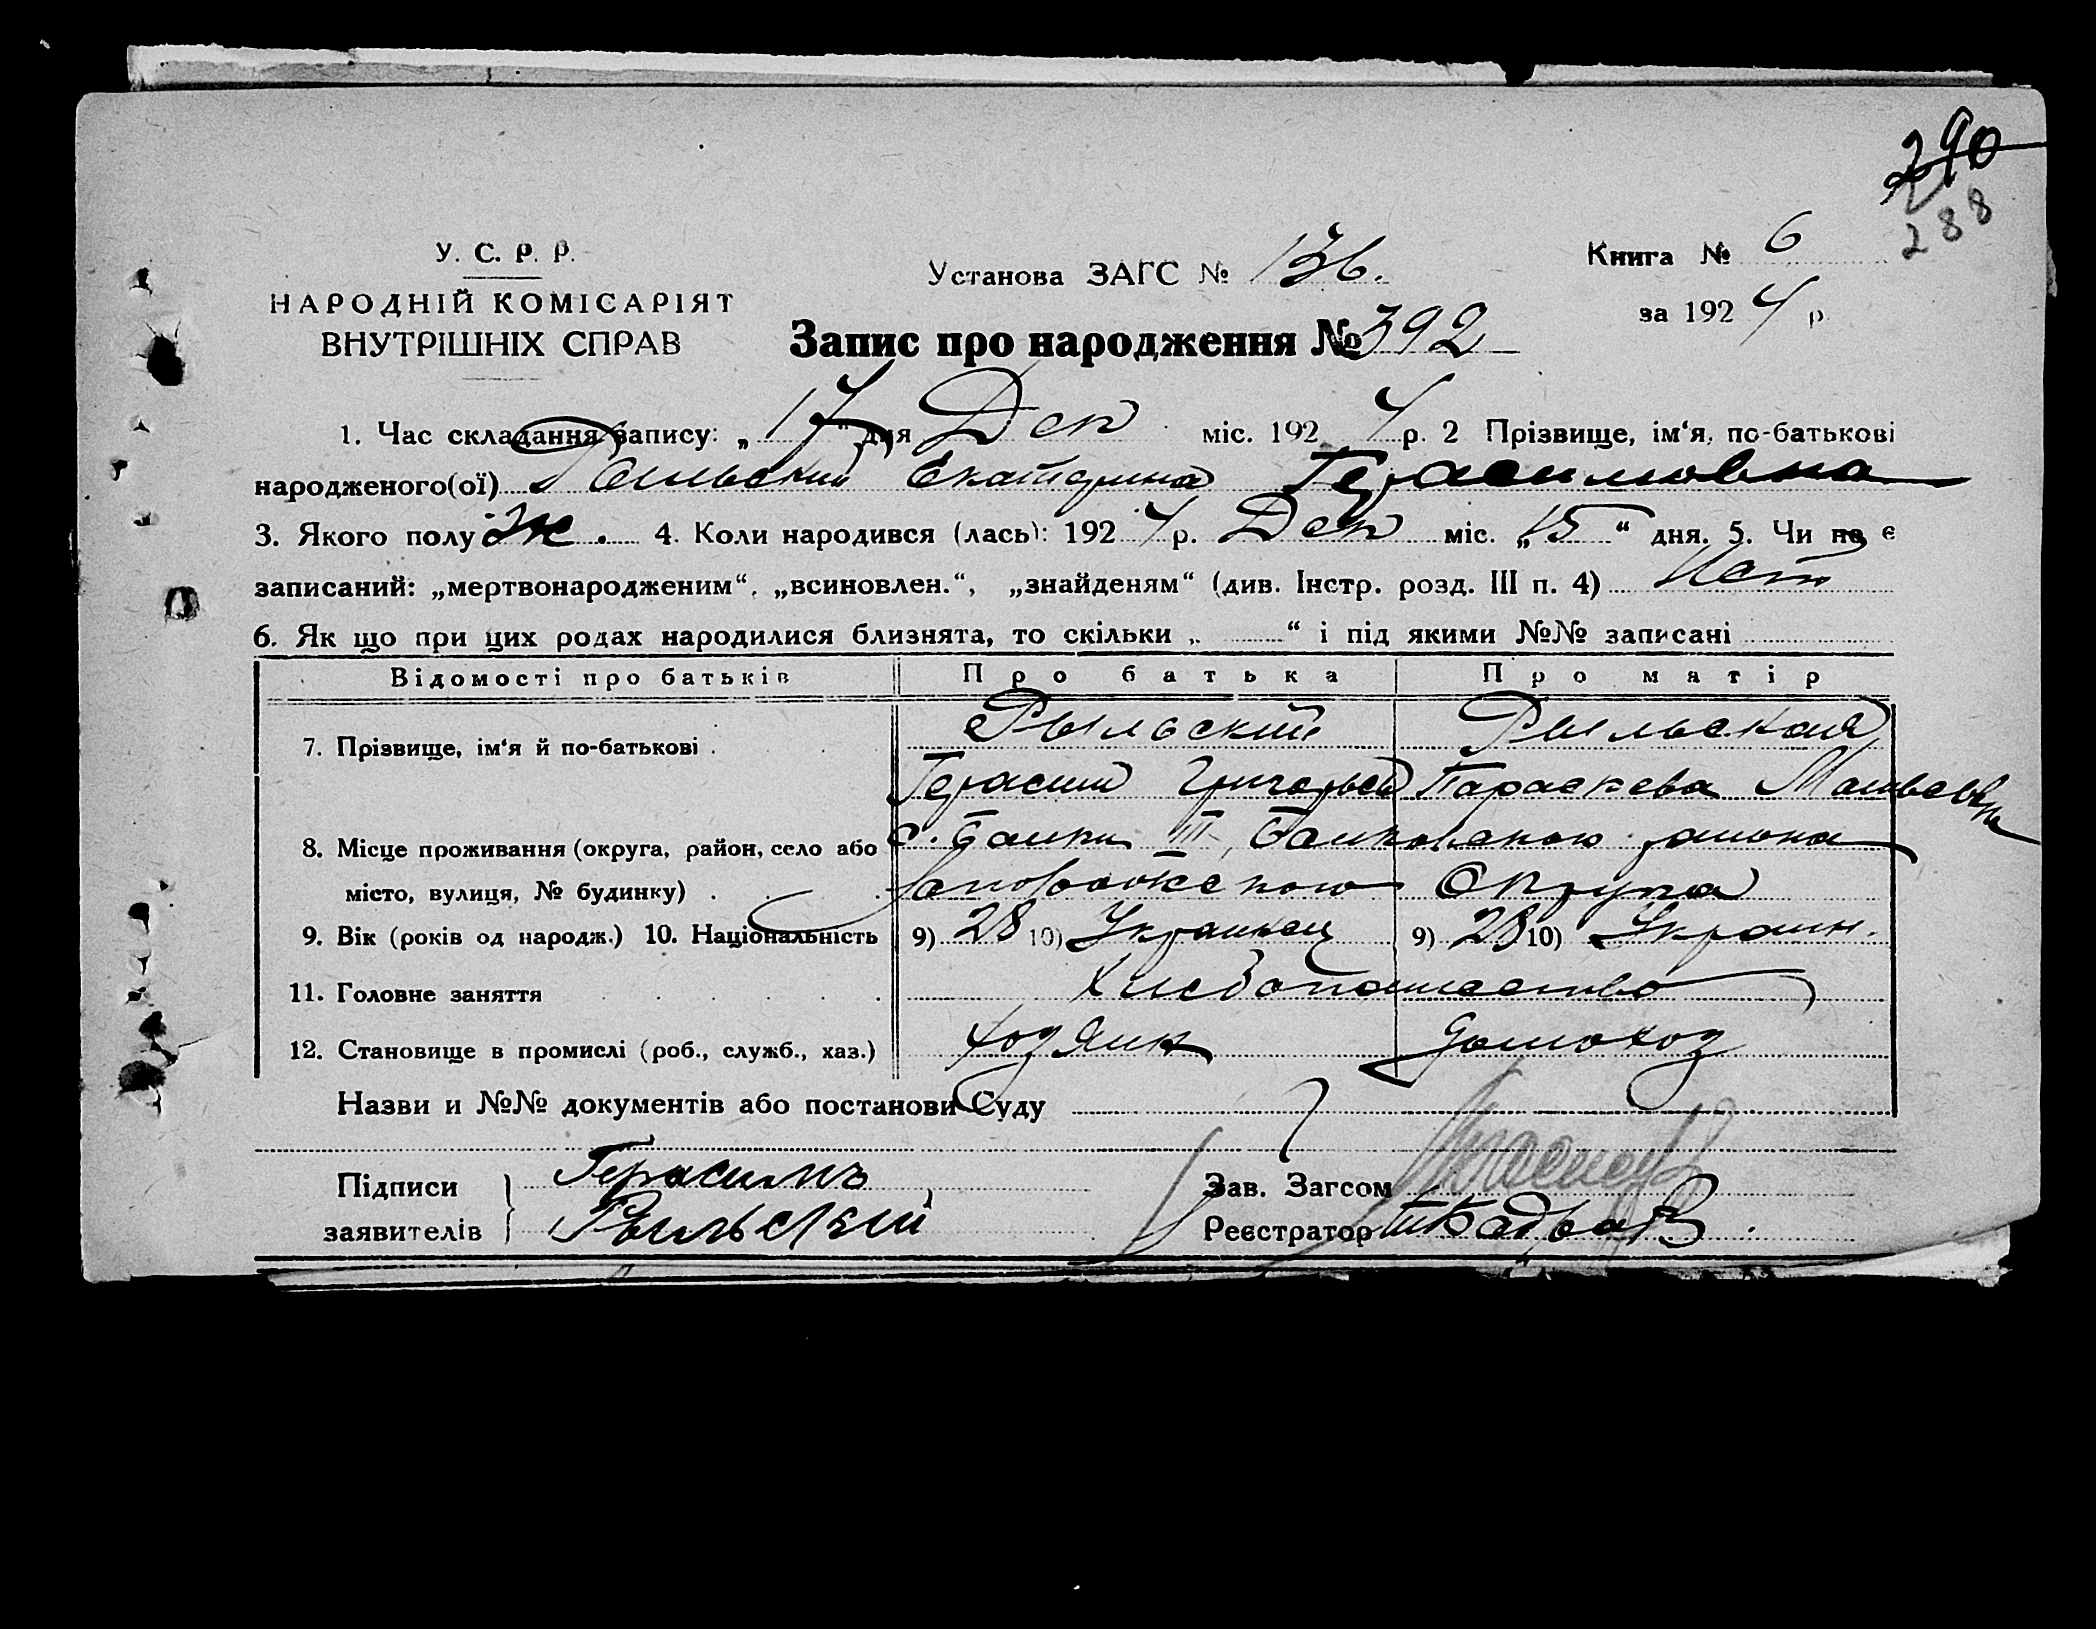 290
288
У. С. Р. Р.
НАРОДНІЙ КОМІСАРІЯТ
ВНУТРІШНІХ СПРАВ
Установа ЗАГС № 136.
Книга № 6
за 1924 р.
Запис про народження № 392
1. Час складання запису: „17“ дня Дек міс. 1924 р. 2 Прізвище, ім‘я, по-батькові
народженого(ої) Рыльский Екатерина Герасимовна
3. Якого полу Ж. 4. Коли народився (лась): 1924 р. Дек міс. „15“ дня. 5. Чи не є
записаний: „мертвонародженим“, „всиновлен.“, „знайденям“ (див. Інстр. розд. III п. 4) Нет
6. Як що при цих родах народилися близнята, то скільки „ “ і під якими №№ записані
Відомості про батьків Про батька Про матір
7. Прізвище, ім‘я й по-батькові . Рыльский Рыльская
Герасим Григорьев Параскева Матвеевна
8. Місце проживання (округа, район, село або с. Балки III, Балковского района
місто, вулиця, № будинку) . Запорожского Округа
9. Вік (років од народж.) 10. Національність 9) 28 10) Украинец 9) 28 10) Украин.
11. Головне заняття Хлебопашество
12. Становище в промислі (роб., служб., хаз.) хозяин домохоз
Назви и №№ документів або постанови Суду
Підписи Герасимъ Зав. Загсом
заявителів Рыльский Реєстратор